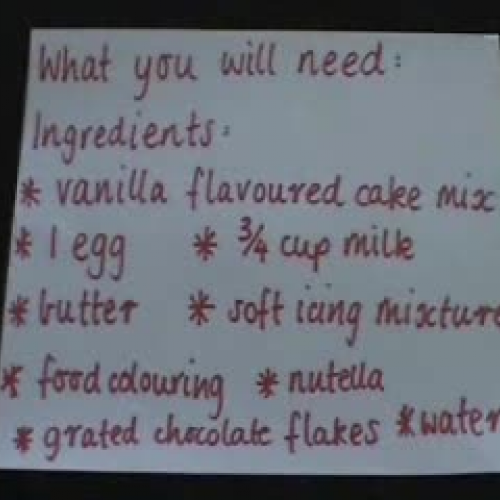 What you will need:
Ingredients:
* vanilla flavoured cake mix
* 1 egg * ¾ cup milk
* butter * soft icing mixture
* food colouring * nutella
* grated chocolate flakes * water